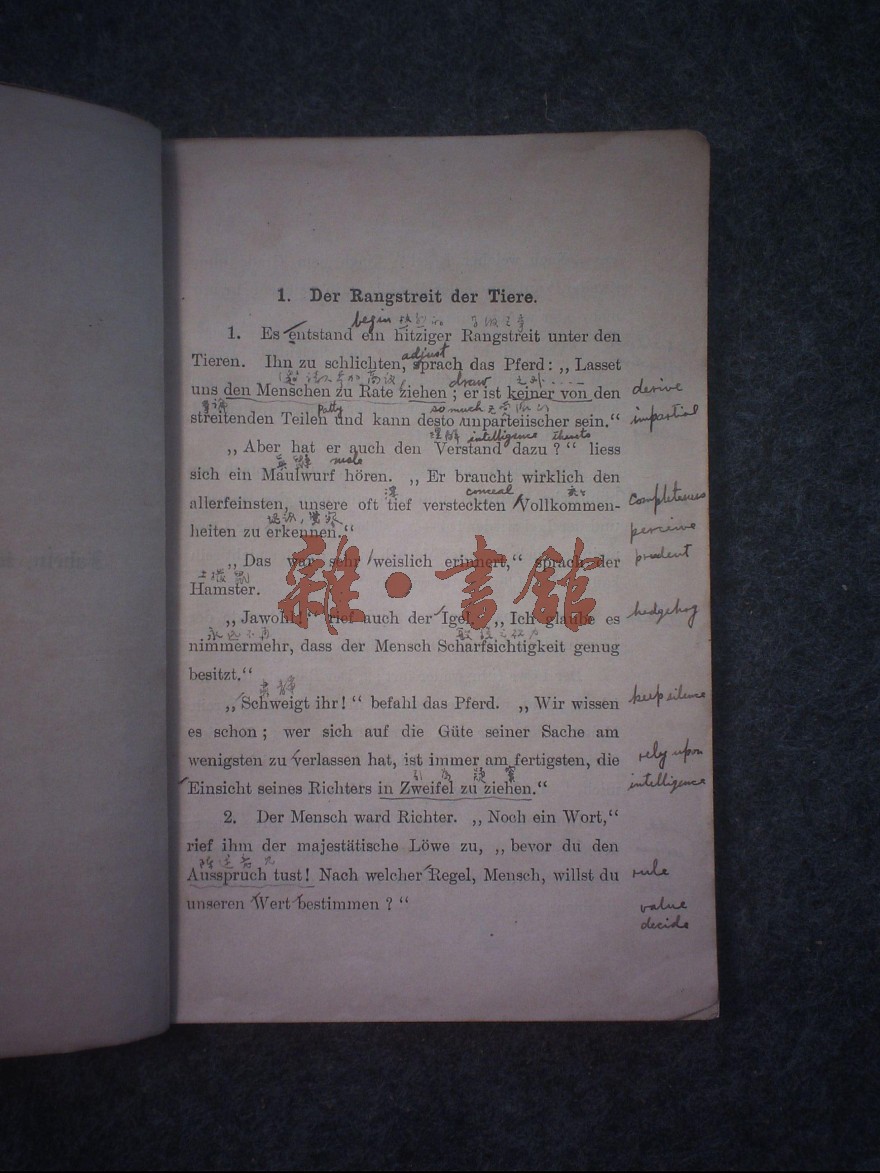 1. Der Rangstreit der Tiere.
begin
1. Es entstand ein hitziger Rangstreit unter den
adjust
Tieren. Ihn zu schlichten, sprach das Pferd: „Lasset
draw
uns den Menschen zu Rate ziehen; er ist keiner von den derive
party so much
streitenden Teilen und kann desto unparteiischer sein.“ impartial
理解 intelligence thereto
„Aber hat er auch den Verstand dazu?“ liess
mole
sich ein Maulwurf hören. „Er braucht wirklich den
深 conceal
allerfeinsten, unsere oft tief versteckten Vollkommen- completeness
heiten zu erkennen.“ perceive
„Das war sehr weislich erinnert,“ sprach der prudent
Hamster.
„Jawohl!“ rief auch der Igel. „Ich glaube es hedgehog
nimmermehr, dass der Mensch Scharfsichtigkeit genug
besitzt.“
肅靜
„Schweigt ihr!“ befahl das Pferd. „Wir wissen keep silence
es schon; wer sich auf die Güte seiner Sache am
wenigsten zu verlassen hat, ist immer am fertigsten, die rely upon
Einsicht seines Richters in Zweifel zu ziehen.“ intelligence
2. Der Mensch ward Richter. „Noch ein Wort,“
rief ihm der majestätische Löwe zu, „bevor du den
Ausspruch tust! Nach welcher Regel, Mensch, willst du rule
unseren Wert bestimmen?“ value
decide
雜·書館